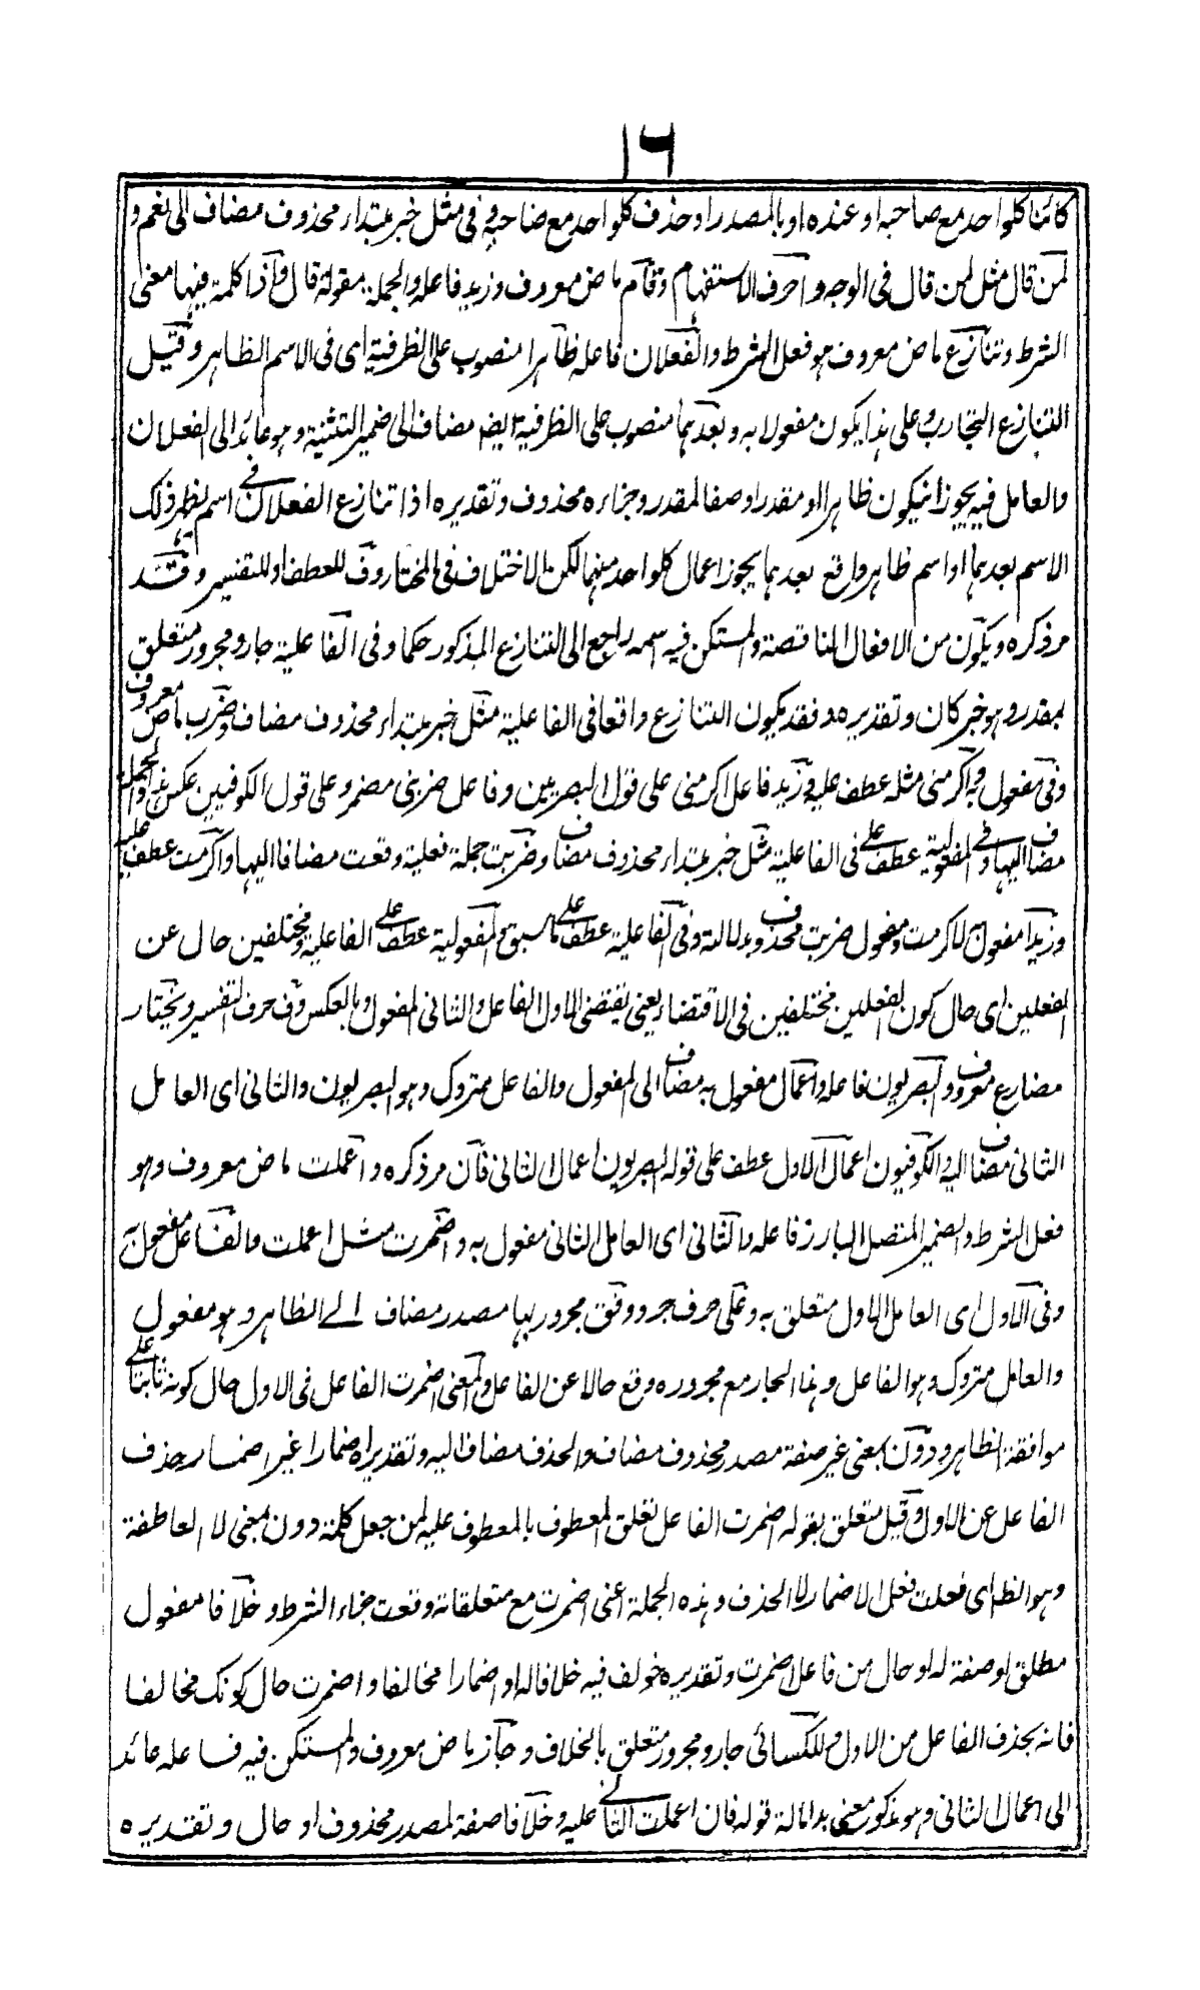 ١٦
كائنا كلواحد مع صاحبه او عنده او بالمصدر او حذف كلواحد مع صاحبه وفى مثل خبر مبتداء محذوف مضاف الى نعم و
لمن قال مثل لمن قال فى الوجوه و احرف الاستفهام وقام ماض معروف وزيد فاعله والجملة مقولة قال واذا كلمة فيها معنى
الشرط وتنازع ماض معروف هو فعل الشرط والفعلان فاعله ظاهرا منصوب على الظرفية اى فى الاسم الظاهر وقيل
التنازع التجارب وعلى هذا يكون مفعولا به وبعدهما منصوب على الظرفية ايضا مضاف الى ضمير التثنية وهو عائد الى الفعلان
والعامل فيه يجوز انيكون ظاهرا او مقدرا وصفا لمقدر وجزاءه محذوف وتقديره اذا تنازع الفعلان فى اسم ظاهر ذلك
الاسم بعدهما او اسم ظاهر واقع بعدهما يجوز اعمال كلواحد منهما لكن الاختلاف فى المختار وف للعطف او للتفسير وقد
مر ذكره ويكون من الافعال الناقصة والمستكن فيه اسمه راجع الى التنازع المذكور حكما وفى الفاعلية جار ومجرور متعلق
بمقدر وهو خبر كان وتقديره فقد يكون التنازع واقعا فى الفاعلية مثل خبر مبتداء محذوف مضاف وضرب ماض معروف
وفى مفعول به واكرمنى مثله عطف عليه وزيد فاعل اكرمنى على قول البصريين وفاعل ضربنى مضمر وعلى قول الكوفيين عكس هذا والجملة
مضاف اليها وفى المفعولية عطف على فى الفاعلية مثل خبر مبتداء محذوف مضاف وضربت جملة فعلية وقعت مضافا اليها واكرمت عطف عليه
وزيدا مفعول به لاكرمت ومفعول ضربت محذوف بدلالته وفى الفاعلية عطف على ما سبق والمفعولية عطف على الفاعلية ومختلفين حال عن
الفعلين اى حال كون الفعلين مختلفين فى الاقتضاء يعنى يقتضى الاول الفاعل والثانى المفعول وبالعكس وف حرف التفسير ويختار
مضارع معروف والبصريون فاعله واعمال مفعول به مضاف الى المفعول والفاعل متروك وهو البصريون والثانى اى العامل
الثانى مضاف اليه والكوفيون اعمال الاول عطف على قوله البصريون اعمال الثانى فان مر ذكره و اعملت ماض معروف وهو
فعل الشرط والضمير المتصل البارز فاعله والثانى اى العامل الثانى مفعول به و اضمرت مثل اعملت والفاعل مفعول به
وفى الاول اى العامل الاول متعلق به وعلى حرف جر ووفق مجرور بها مصدر مضاف الے الظاهر وهو مفعول
والعامل متروك وهو الفاعل وهذا الجار مع مجروره وقع حالا عن الفاعل والمعنى اضمرت الفاعل فى الاول حال كونه ثابتا على
موافقة الظاهر ودون بمعنى غير صفة مصدر محذوف مضاف والحذف مضاف اليه وتقديره اضمارا غير اضمار حذف
الفاعل عن الاول وقيل متعلق بقوله اضمرت الفاعل تعلق المعطوف بالمعطوف عليه لمن جعل كلمة دون بمعنى لا العاطفة
وهو الظاهر اى فعلت فعل الاضمار لا الحذف وهذه الجملة اعنى اضمرت مع متعلقاته وقعت جزاء الشرط و خلافا مفعول
مطلق او صفة له او حال من فاعل اضمرت وتقديره خولف فيه خلافا له او اضمارا مخالفا و اضمرت حال كونك مخالفا
فانه بحذف الفاعل من الاول و للكسائى جار ومجرور متعلق بالخلاف و جاز ماض معروف والمستكن فيه فاعله عائد
الى اعمال الثانى وهو مذكور معنى بدلالة قوله فان اعملت الثانى عليه و خلافا صفة لمصدر محذوف او حال وتقديره